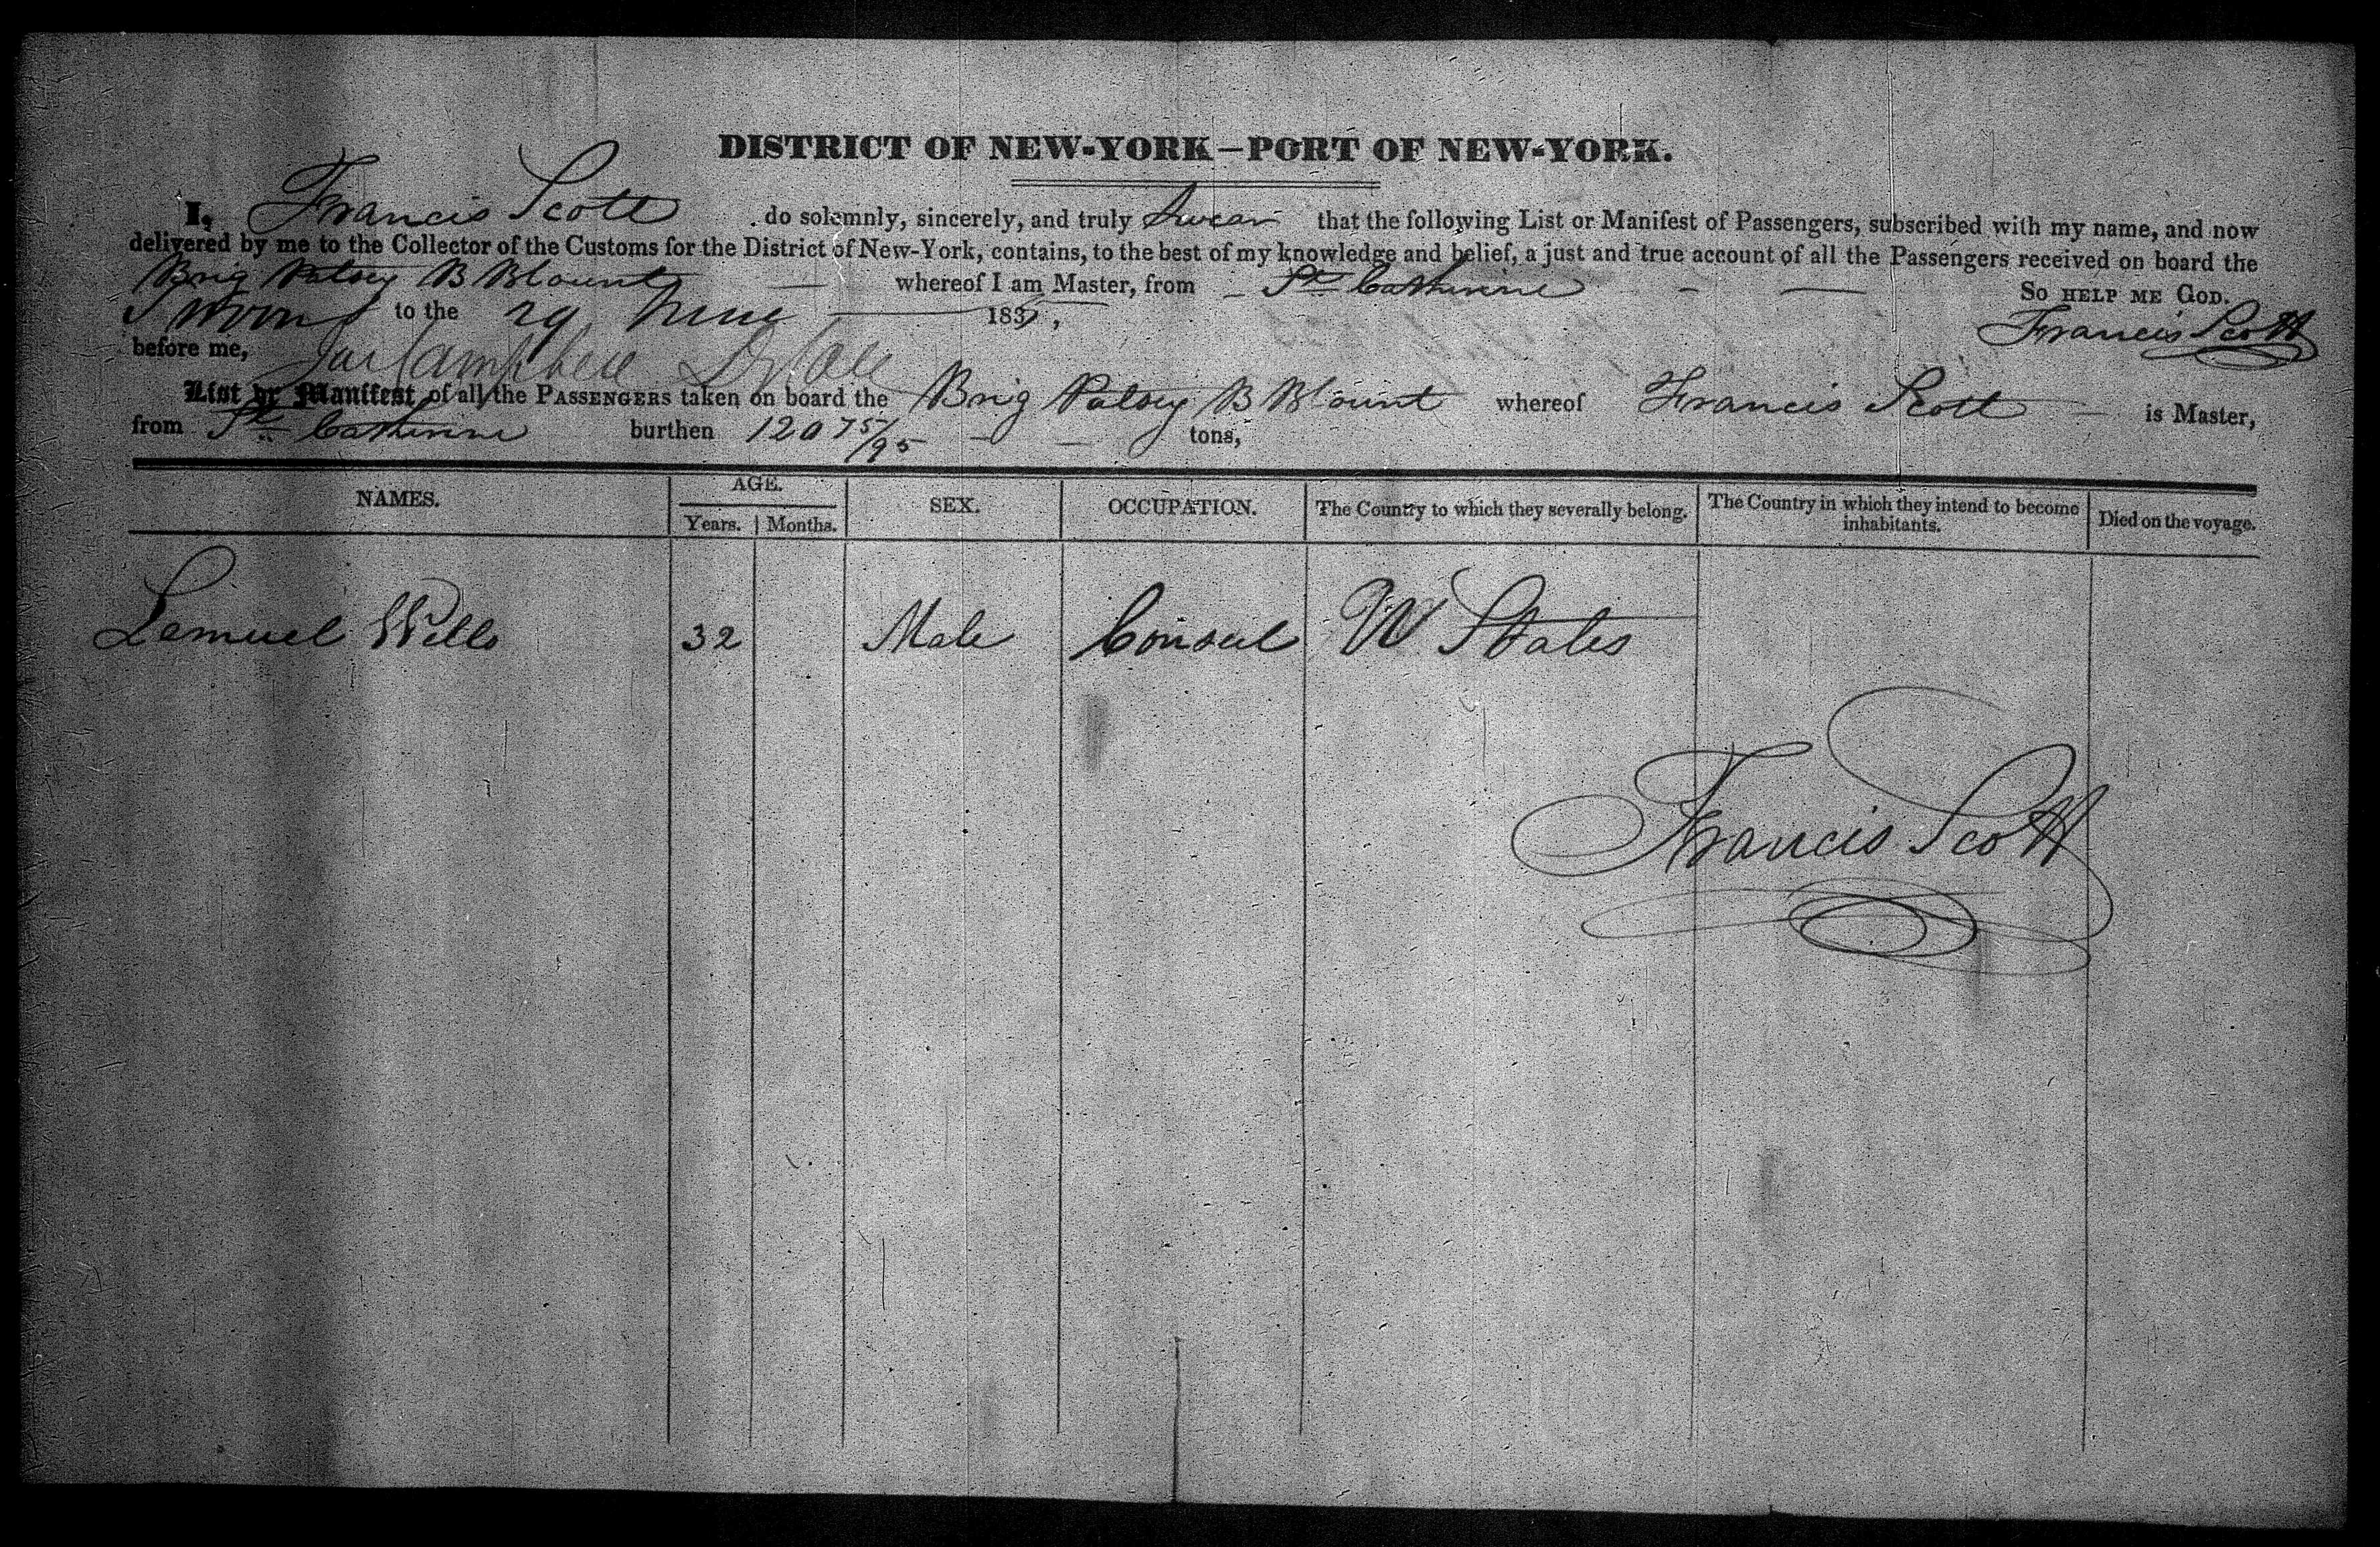 DISTRICT OF NEW-YORK—PORT OF NEW-YORK.
I, Francis Scott do solemnly, sincerely, and truly Swear that the following List or Manifest of Passengers, subscribed with my name, and now
delivered by me to the Collector of the Customs for the District of New-York, contains, to the best of my knowledge and belief, a just and true account of all the Passengers received on board the
Brig Patsey B Blount whereof I am Master, from St Catherine So HELP ME GOD.
Sworn to the 29 June 183
Francis Scott
before me,
List or Manifest of all the PASSENGERS taken on board the Brig Patsey B Blount whereof Francis Scott is Master,
from St Catherine burthen 120 75/95 tons,
NAMES. AGE. SEX. OCCUPATION. The Country to which they severally belong. The Country in which they intend to become inhabitants. Died on the voyage.
Years. Months.
Lemuel Wells 32 Male Consul U States
Francis Scott